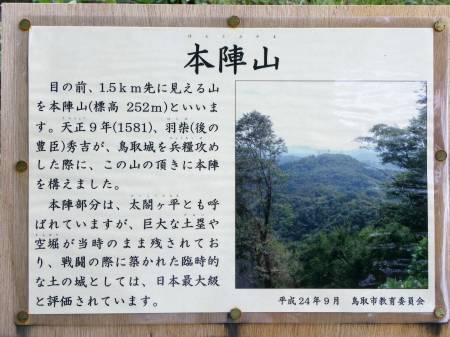 ほんじんやま
本陣山
目の前、1.5km先に見える山
を本陣山(標高 252m)といいま
す。天正9年(1581)、羽柴(後の
豊臣)秀吉が、鳥取城を兵糧攻め
した際に、この山の頂きに本陣
を構えました。
本陣部分は、太閤ヶ平とも呼
ばれていますが、巨大な土塁や
空堀が当時のまま残されてお
り、戦闘の際に築かれた臨時的
な土の城としては、日本最大級
と評価されています。
平成24年9月 鳥取市教育委員会